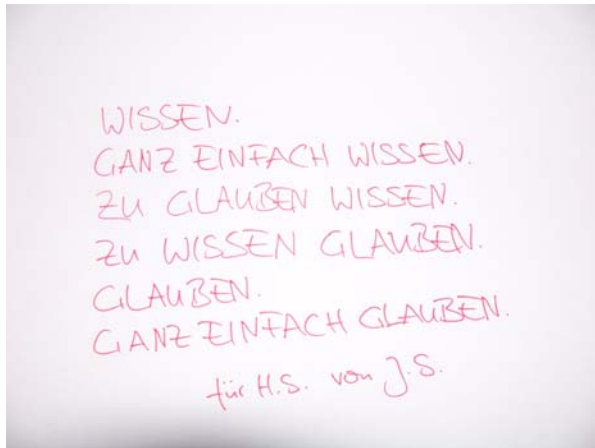 WISSEN.
GANZ EINFACH WISSEN.
ZU GLAUBEN WISSEN.
ZU WISSEN GLAUBEN.
GLAUBEN.
GANZ EINFACH GLAUBEN.
für H.S. von J.S.